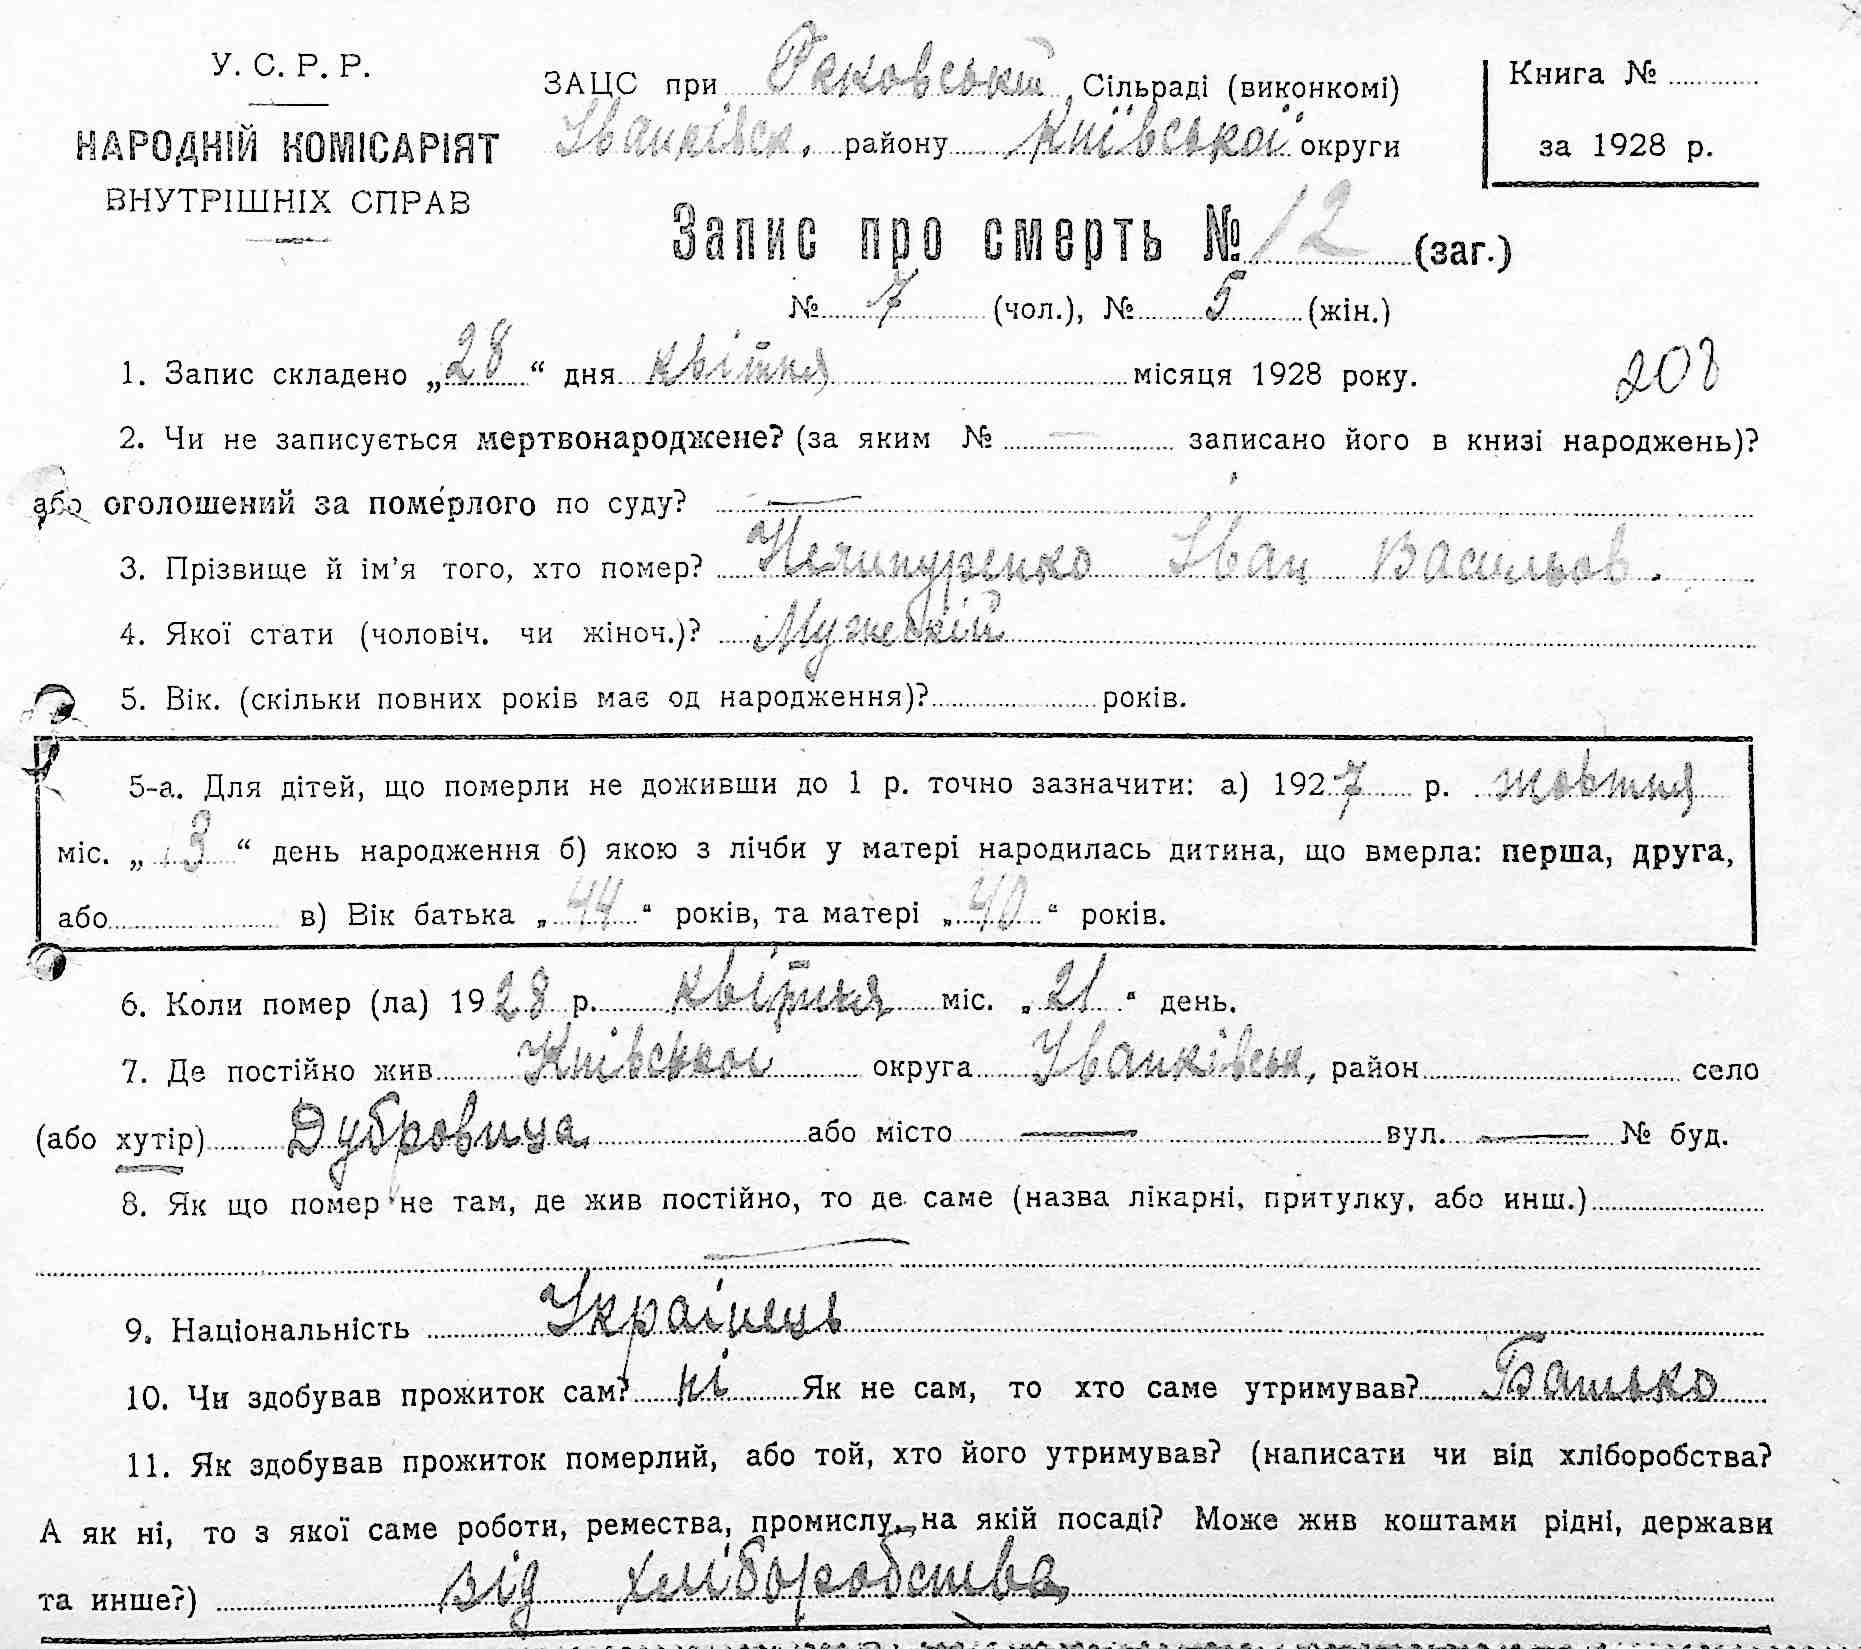 У. С. Р. Р.
НАРОДНІЙ КОМІСАРІЯТ
ВНУТРІШНІХ СПРАВ
ЗАЦС при Сільраді (виконкомі)
Іванківськ. району Київської округи
Книга №
за 1928 р.
Запис про смерть № 12 (заг.)
№ 7 (чол.), № 5 (жін.)
1. Запис складено „28“ дня квітня місяця 1928 року.
208
2. Чи не записується мертвонароджене? (за яким № — записано його в книзі народжень)?
або оголошений за померлого по суду? —
3. Прізвище й ім'я того, хто помер? Іван Васильов.
4. Якої стати (чоловіч. чи жіноч.)? Мужескій
5. Вік. (скільки повних років має од народження)? років.
5-а. Для дітей, що померли не доживши до 1 р. точно зазначити: а) 1927 р. жовтня
міс. „ “ день народження б) якою з лічби у матері народилась дитина, що вмерла: перша, друга,
або в) Вік батька „44“ років, та матері „40“ років.
6. Коли помер (ла) 1928 р. квітня міс. „21“ день.
7. Де постійно жив Київської округа Іванківськ, район село
(або хутір) Дубровица або місто — вул. — № буд.
8. Як що помер не там, де жив постійно, то де саме (назва лікарні, притулку, або инш.)
—
9. Національність Українець
10. Чи здобував прожиток сам? ні Як не сам, то хто саме утримував? Батько
11. Як здобував прожиток померлий, або той, хто його утримував? (написати чи від хліборобства?
А як ні, то з якої саме роботи, ремества, промислу, на якій посаді? Може жив коштами рідні, держави
та инше?) від хліборобства